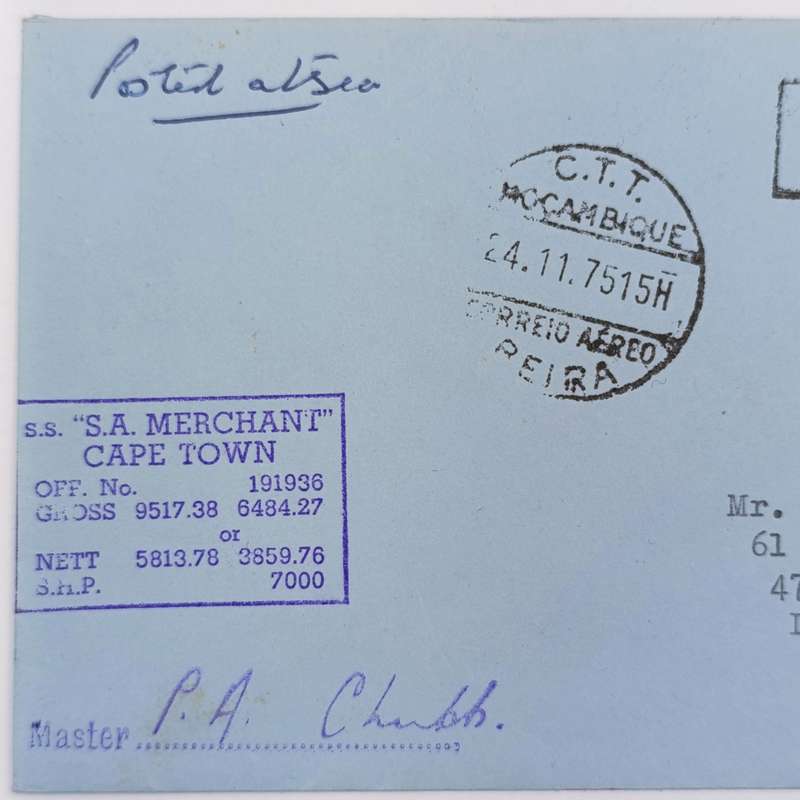 Posted at Sea
C.T.T.
MOÇAMBIQUE
24.11.7515H
CORREIO AÉREO
BEIRA
s.s. "S.A. MERCHANT"
CAPE TOWN
OFF. No. 191936
GROSS 9517.38 6484.27
or
NETT 5813.78 3859.76
S.H.P. 7000
Mr.
61
47
Master P. A. Chubb.